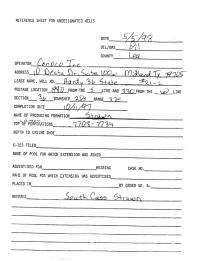 REFERENCE SHEET FOR UNDESIGNATED WELLS
DATE 5/5/98
OIL/GAS Oil
COUNTY Lea
OPERATOR Conoco Inc
ADDRESS 10 Desta Dr. Suite 100W Midland Tx 79705
LEASE NAME, WELL NO. Hardy 36 State #21-L
FOOTAGE LOCATION FROM THE S LINE AND 330 FROM THE W LINE
SECTION 36 TOWNSHIP RANGE 37E
COMPLETION DATE 10/11/97
NAME OF PRODUCING FORMATION Strawn
TOP OF PERFORATIONS 7708-7734
DEPTH TO CASING SHOE
C-123 FILED
NAME OF POOL FOR WHICH EXTENSION WAS ASKED
ADVERTISED FOR HEARING CASE NO.
NAME OF POOL FOR WHICH EXTENSION WAS ADVERTISED
PLACED IN BY ORDER NO. R-
REMARKS South Cass Strawn